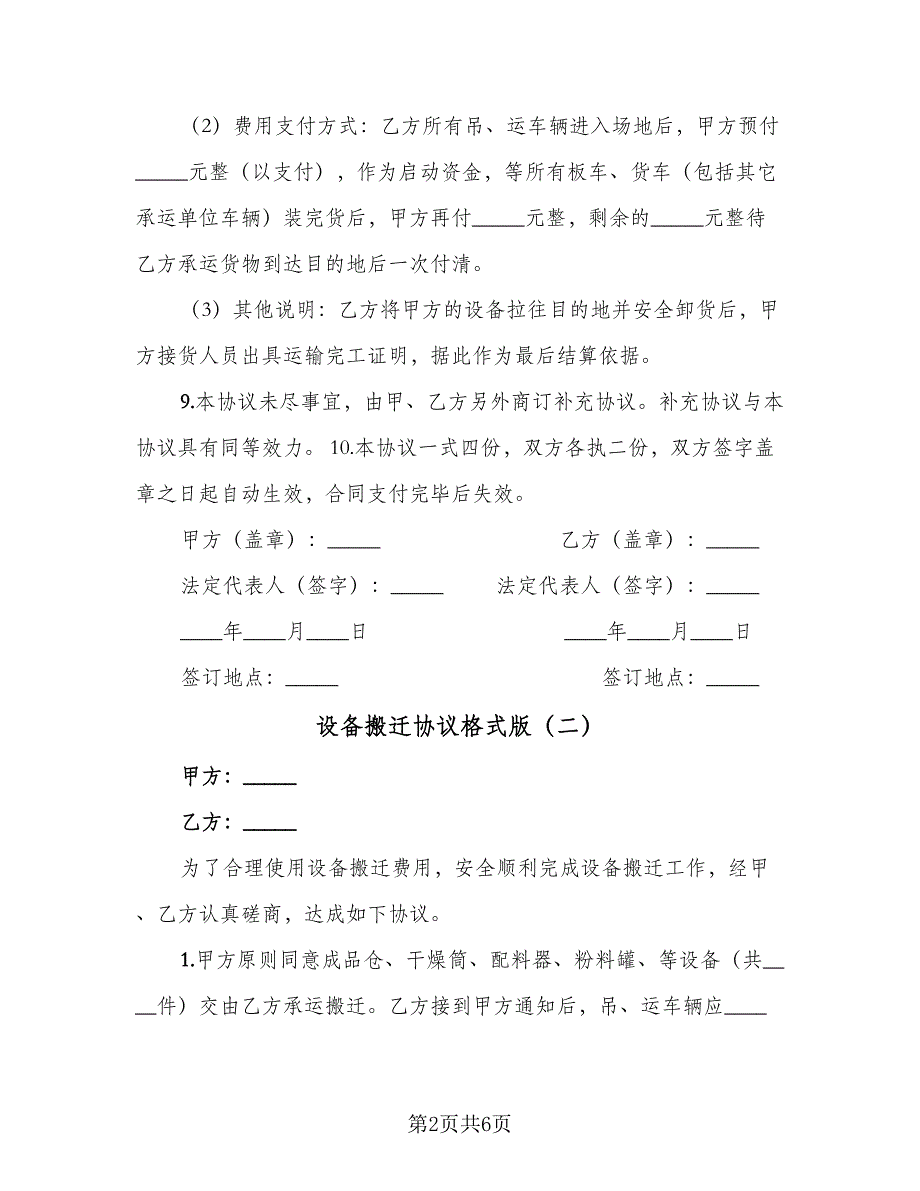 （2）费用支付方式：乙方所有吊、运车辆进入场地后，甲方预付
_____元整（以支付），作为启动资金，等所有板车、货车（包括其它
承运单位车辆）装完货后，甲方再付_____元整，剩余的_____元整待
乙方承运货物到达目的地后一次付清。
（3）其他说明：乙方将甲方的设备拉往目的地并安全卸货后，甲
方接货人员出具运输完工证明，据此作为最后结算依据。
9.本协议未尽事宜，由甲、乙方另外商订补充协议。补充协议与本
协议具有同等效力。 10.本协议一式四份，双方各执二份，双方签字盖
章之日起自动生效，合同支付完毕后失效。
甲方（盖章）：_____ 乙方（盖章）：_____
法定代表人（签字）：_____ 法定代表人（签字）：_____
____年____月____日 ____年____月____日
签订地点：_____ 签订地点：_____
设备搬迁协议格式版（二）
甲方：_____
乙方：_____
为了合理使用设备搬迁费用，安全顺利完成设备搬迁工作，经甲
、乙方认真磋商，达成如下协议。
1.甲方原则同意成品仓、干燥筒、配料器、粉料罐、等设备（共__
__件）交由乙方承运搬迁。乙方接到甲方通知后，吊、运车辆应____
第2页共6页